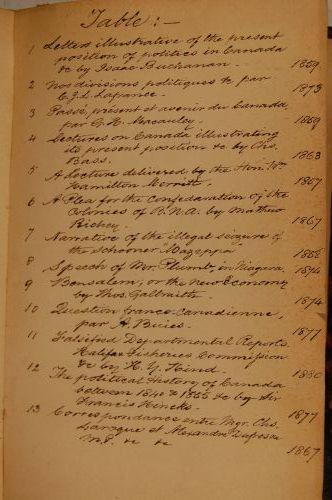 Table:—
1 Letters illustrative of the present
position of politics in Canada
&c by Isaac Buchanan. 1859
2 Nos divisions politiques &c, par
L. Lafrance. 1873
3 Passé, présent et avenir du Canada,
par Macauley. 1859
4 Lectures on Canada illustrating
its present position &c by Chs.
Bass. 1863
5 A Lecture delivered by the Hon. Wm
Hamilton Merritt. 1857
6 A Plea for the Confederation of the
Colonies of B.N.A. by Mathew
Richey. 1867
7 Narrative of the illegal seizure of
the schooner Mazeppa
8 Speech of Mr. Plumb, in Niagara. 1874
9 Bensalem, or the New Economy
by Thos. Galbraith. 1874
10 Question franco-canadienne,
par A. Buies. 1877
11 Falsified Departmental Reports.
Halifax Fisheries Commission
&c by H. Y. Hind. 1880
12 The political History of Canada
between 1840 & 1855 &c by Sir
Francis Hincks. 1877
13 Correspondance entre Mgr. Chs.
Laroque et Alexandre Dufresne
M.P. &c &c 1867